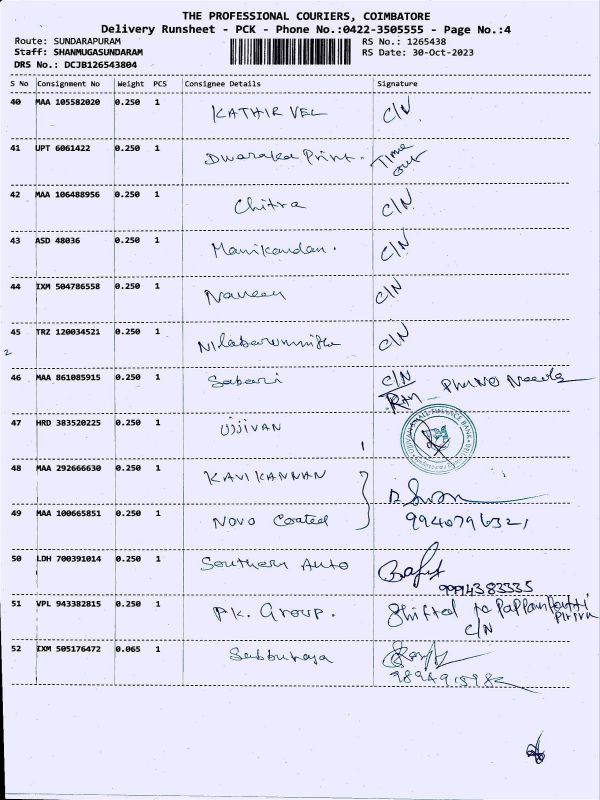 THE PROFESSIONAL COURIERS, COIMBATORE
Delivery Runsheet - PCK - Phone No.:0422-3505555 - Page No.:4
Route: SUNDARAPURAM RS No.: 1265438
Staff: SHANMUGASUNDARAM RS Date: 30-Oct-2023
DRS No.: DCJB126543804
S No Consignment No Weight PCS Consignee Details Signature
40 MAA 105582020 0.250 1 KATHIRVEL C/N
41 UPT 6061422 0.250 1 Dwaraka Print. Time out
42 MAA 106488956 0.250 1 Chitra C/N
43 ASD 48036 0.250 1 Manikandan. C/N
44 IXM 504786558 0.250 1 Naveen C/N
45 TRZ 120034521 0.250 1 C/N
2
46 MAA 861085915 0.250 1 Sabari C/N
47 HRD 383520225 0.250 1 UJJIVAN
48 MAA 292666630 0.250 1 KAVIKANNAN
49 MAA 100665851 0.250 1 Novo Coated 9940796321
50 LDH 700391014 0.250 1 Southern Auto
9994383335
51 VPL 943382815 0.250 1 P.K. Group. Shifted to
C/N
52 IXM 505176472 0.065 1